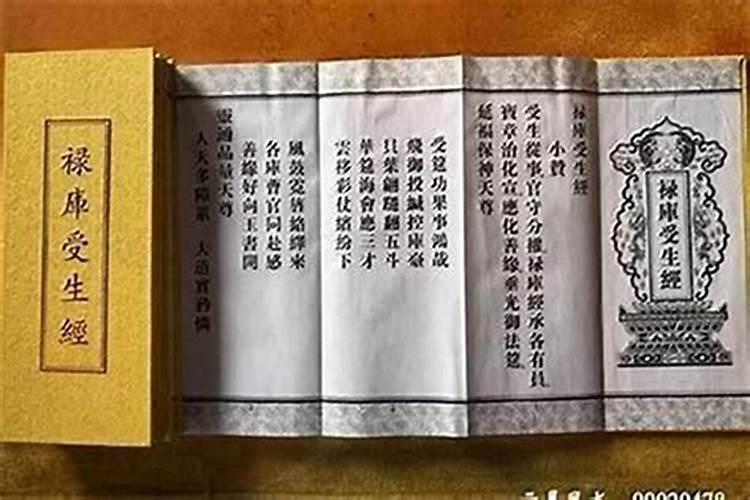 禄庫受生經
禄庫受生經
禄庫受生經
小贊
受生從事官守分權禄庫經承各有員
寶章治化宣應化善緣垂光御法筵
延福保神天尊
受筵功果事鴻哉
飛御投緘控庫臺
貝葉翩翻五斗
華筵海會應三才
雲移彩仗繽紛下
風鼓霓旌絡繹來
各庫曹官同赴感
善緣好向玉書開
靈通品量天尊
人天多障罪 大道實矜憐